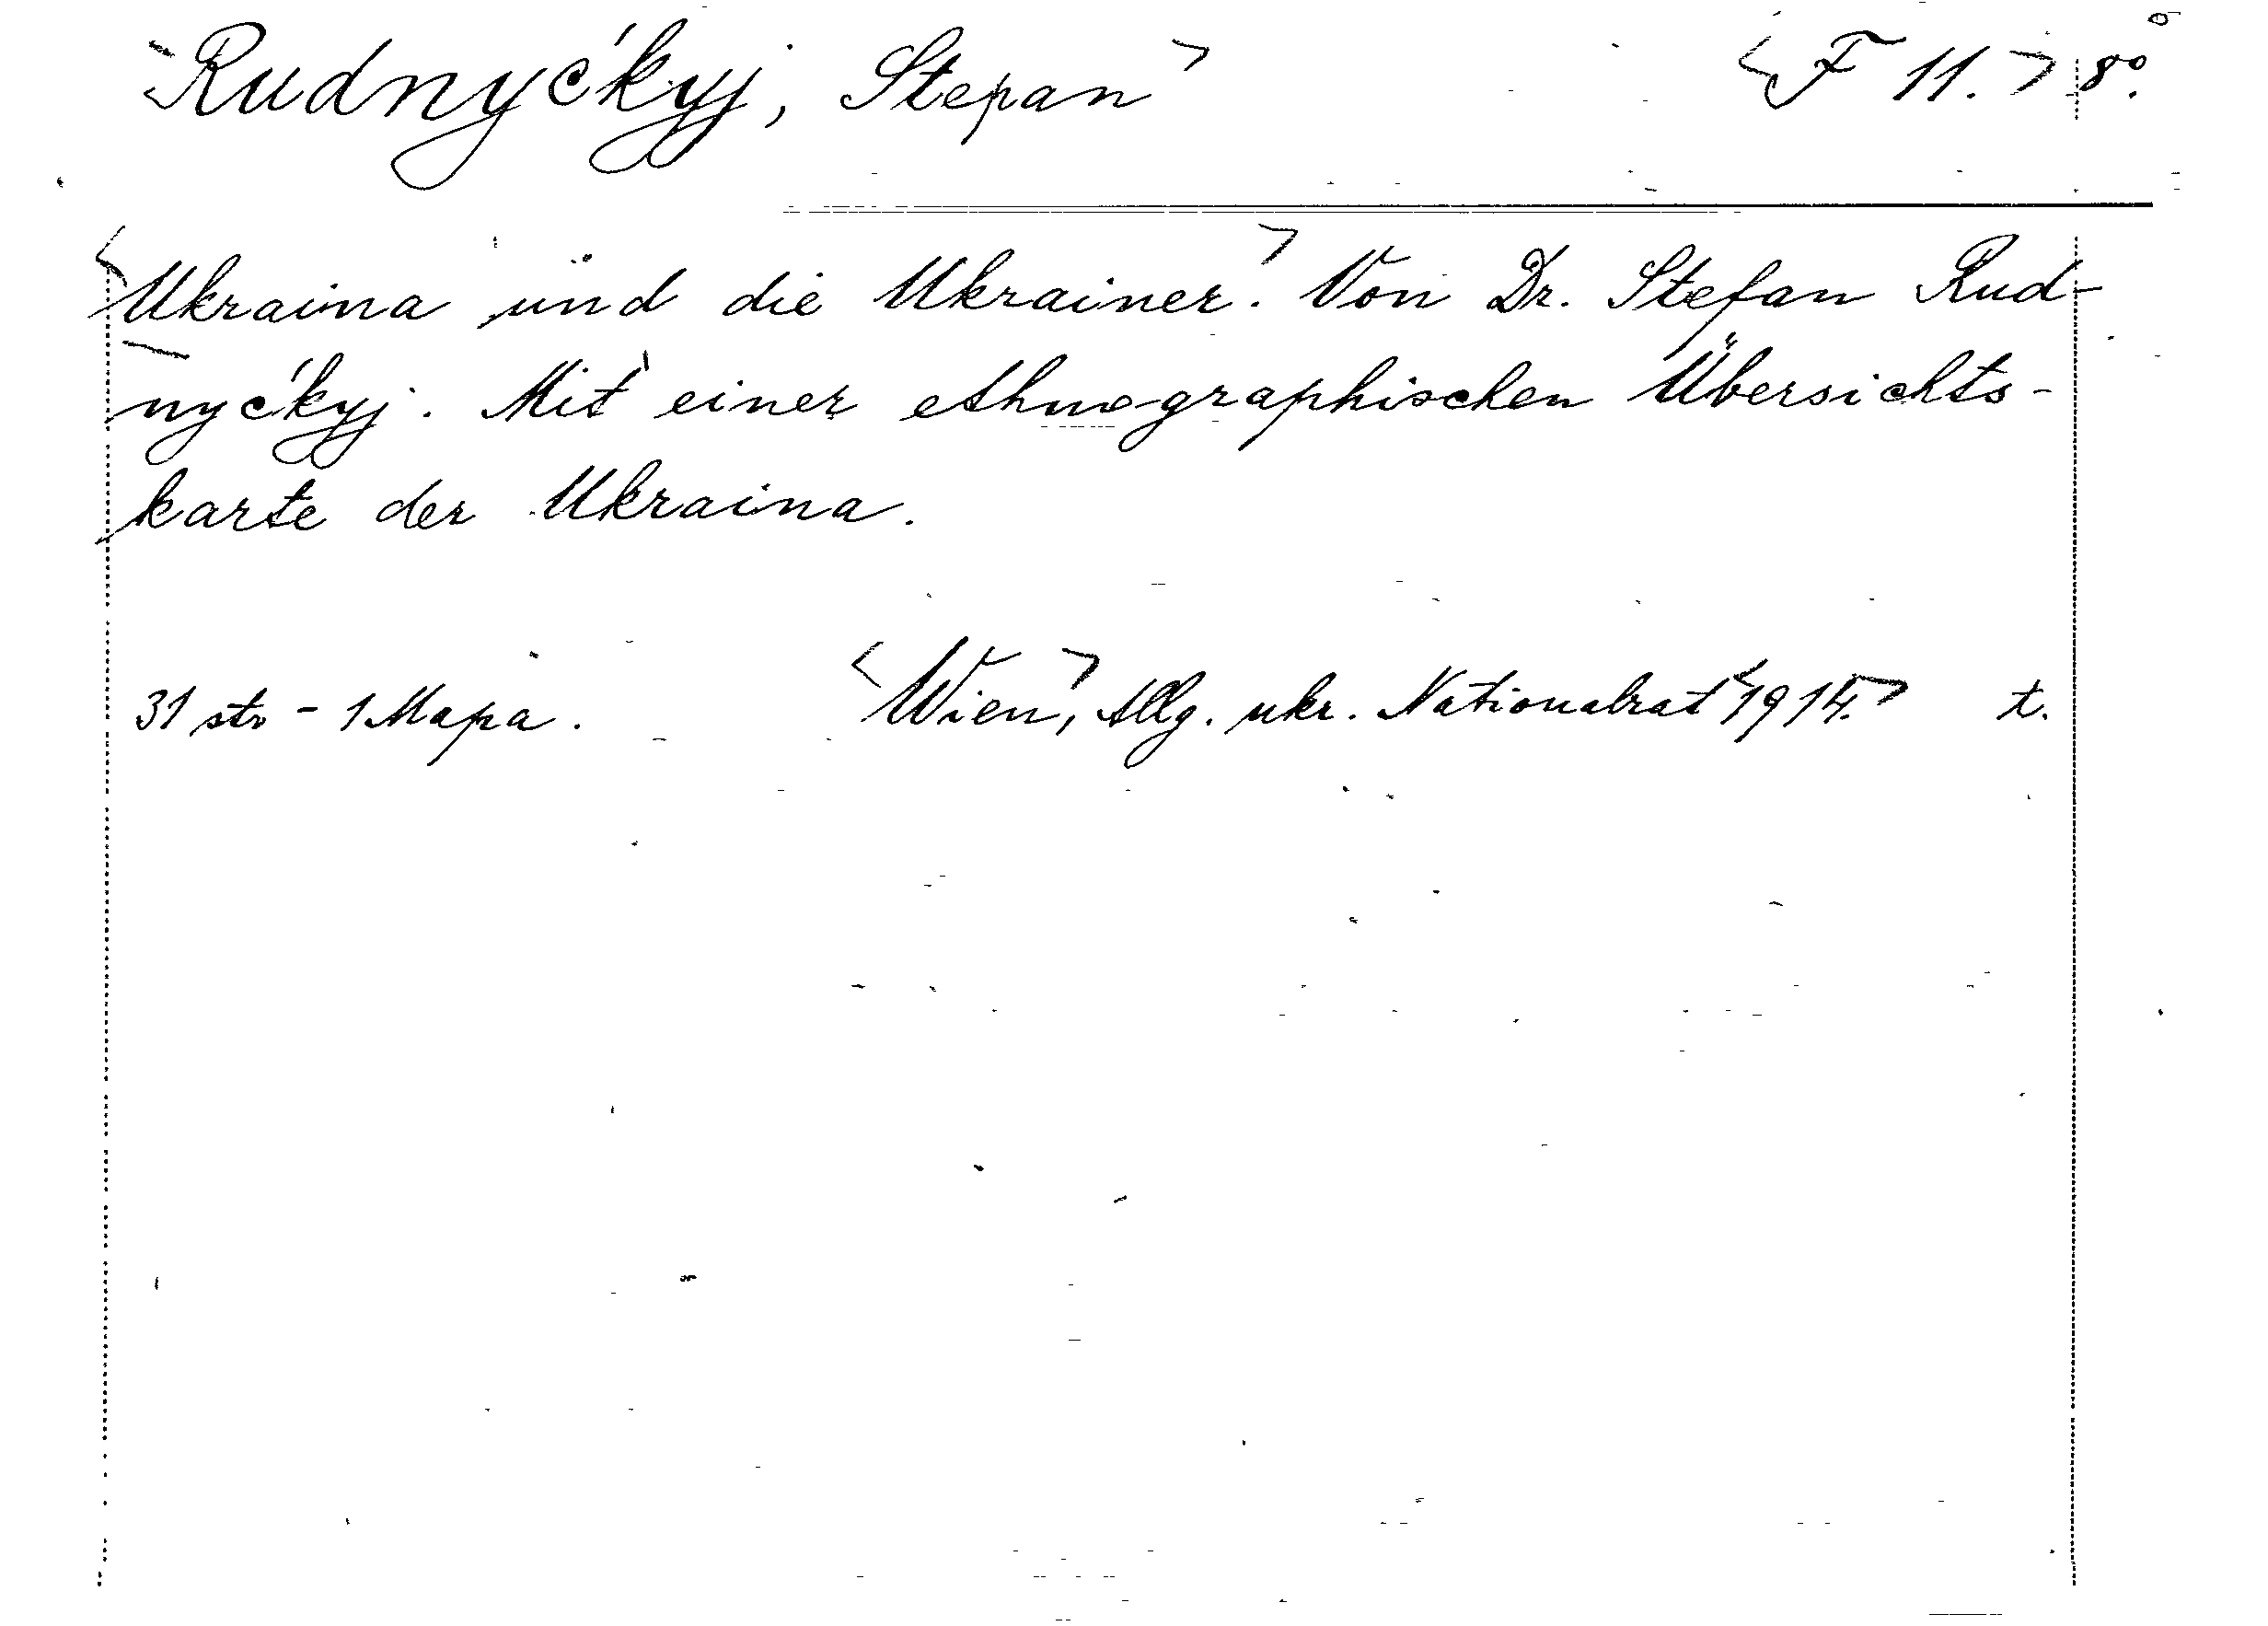 <Rudnyćkyj, Stepan> <F 11.> 8°.
<Ukraina und die Ukrainer.> Von Dr. Stefan Rud-
nyćkyj. Mit einer ethnographischen Übersichts-
karte der Ukraina.
31 str - 1 Mapa. <Wien,> Allg. ukr. Nationalrat <1914.> t.